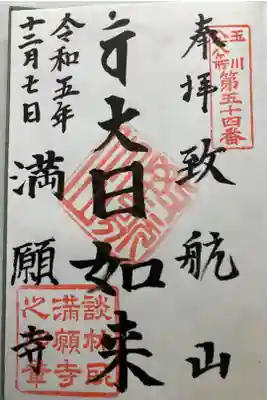 玉川
第五十四番
奉拝 致航山
大日如来
満願寺
令和五年
十二月七日
談林
満願寺
之章